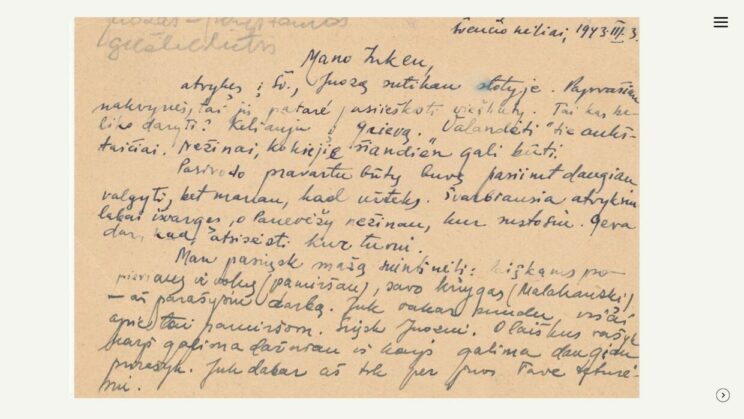 Švenčionėliai, 1943.III.3.
Mano Zuken,
atvykęs į Šv., Juozą sutikau stotyje. Paprašiau
nakvynės, tai jis patarė pasiieškoti viešbuty. Tai kas be-
liko daryti? Keliauju į "Valandėti" tie aukš-
taičiai. Nežinai, kokie jie šiandien gali būti.
Pasirodo pravartu būtų buvę pasiimt daugiau
valgyti, bet manau, kad užteks. Svarbiausia atvyksiu
labai išvargęs, o Panevėžy nežinau, kur sustosiu. Gera
dar, kad atsisėsti kur turiu.
Man pasiųsk mažą siuntinėlį:
(pamiršau), savo knygas (Malakauskį)
– aš parašysiu darbą. Juk vakar
apie tai pamiršom. Siųsk Juozui. O laiškus rašyk
kaip galima dažniau ir kaip galima daugiau
prirašyk. Juk dabar aš tik per juos Tave teturė-
siu.